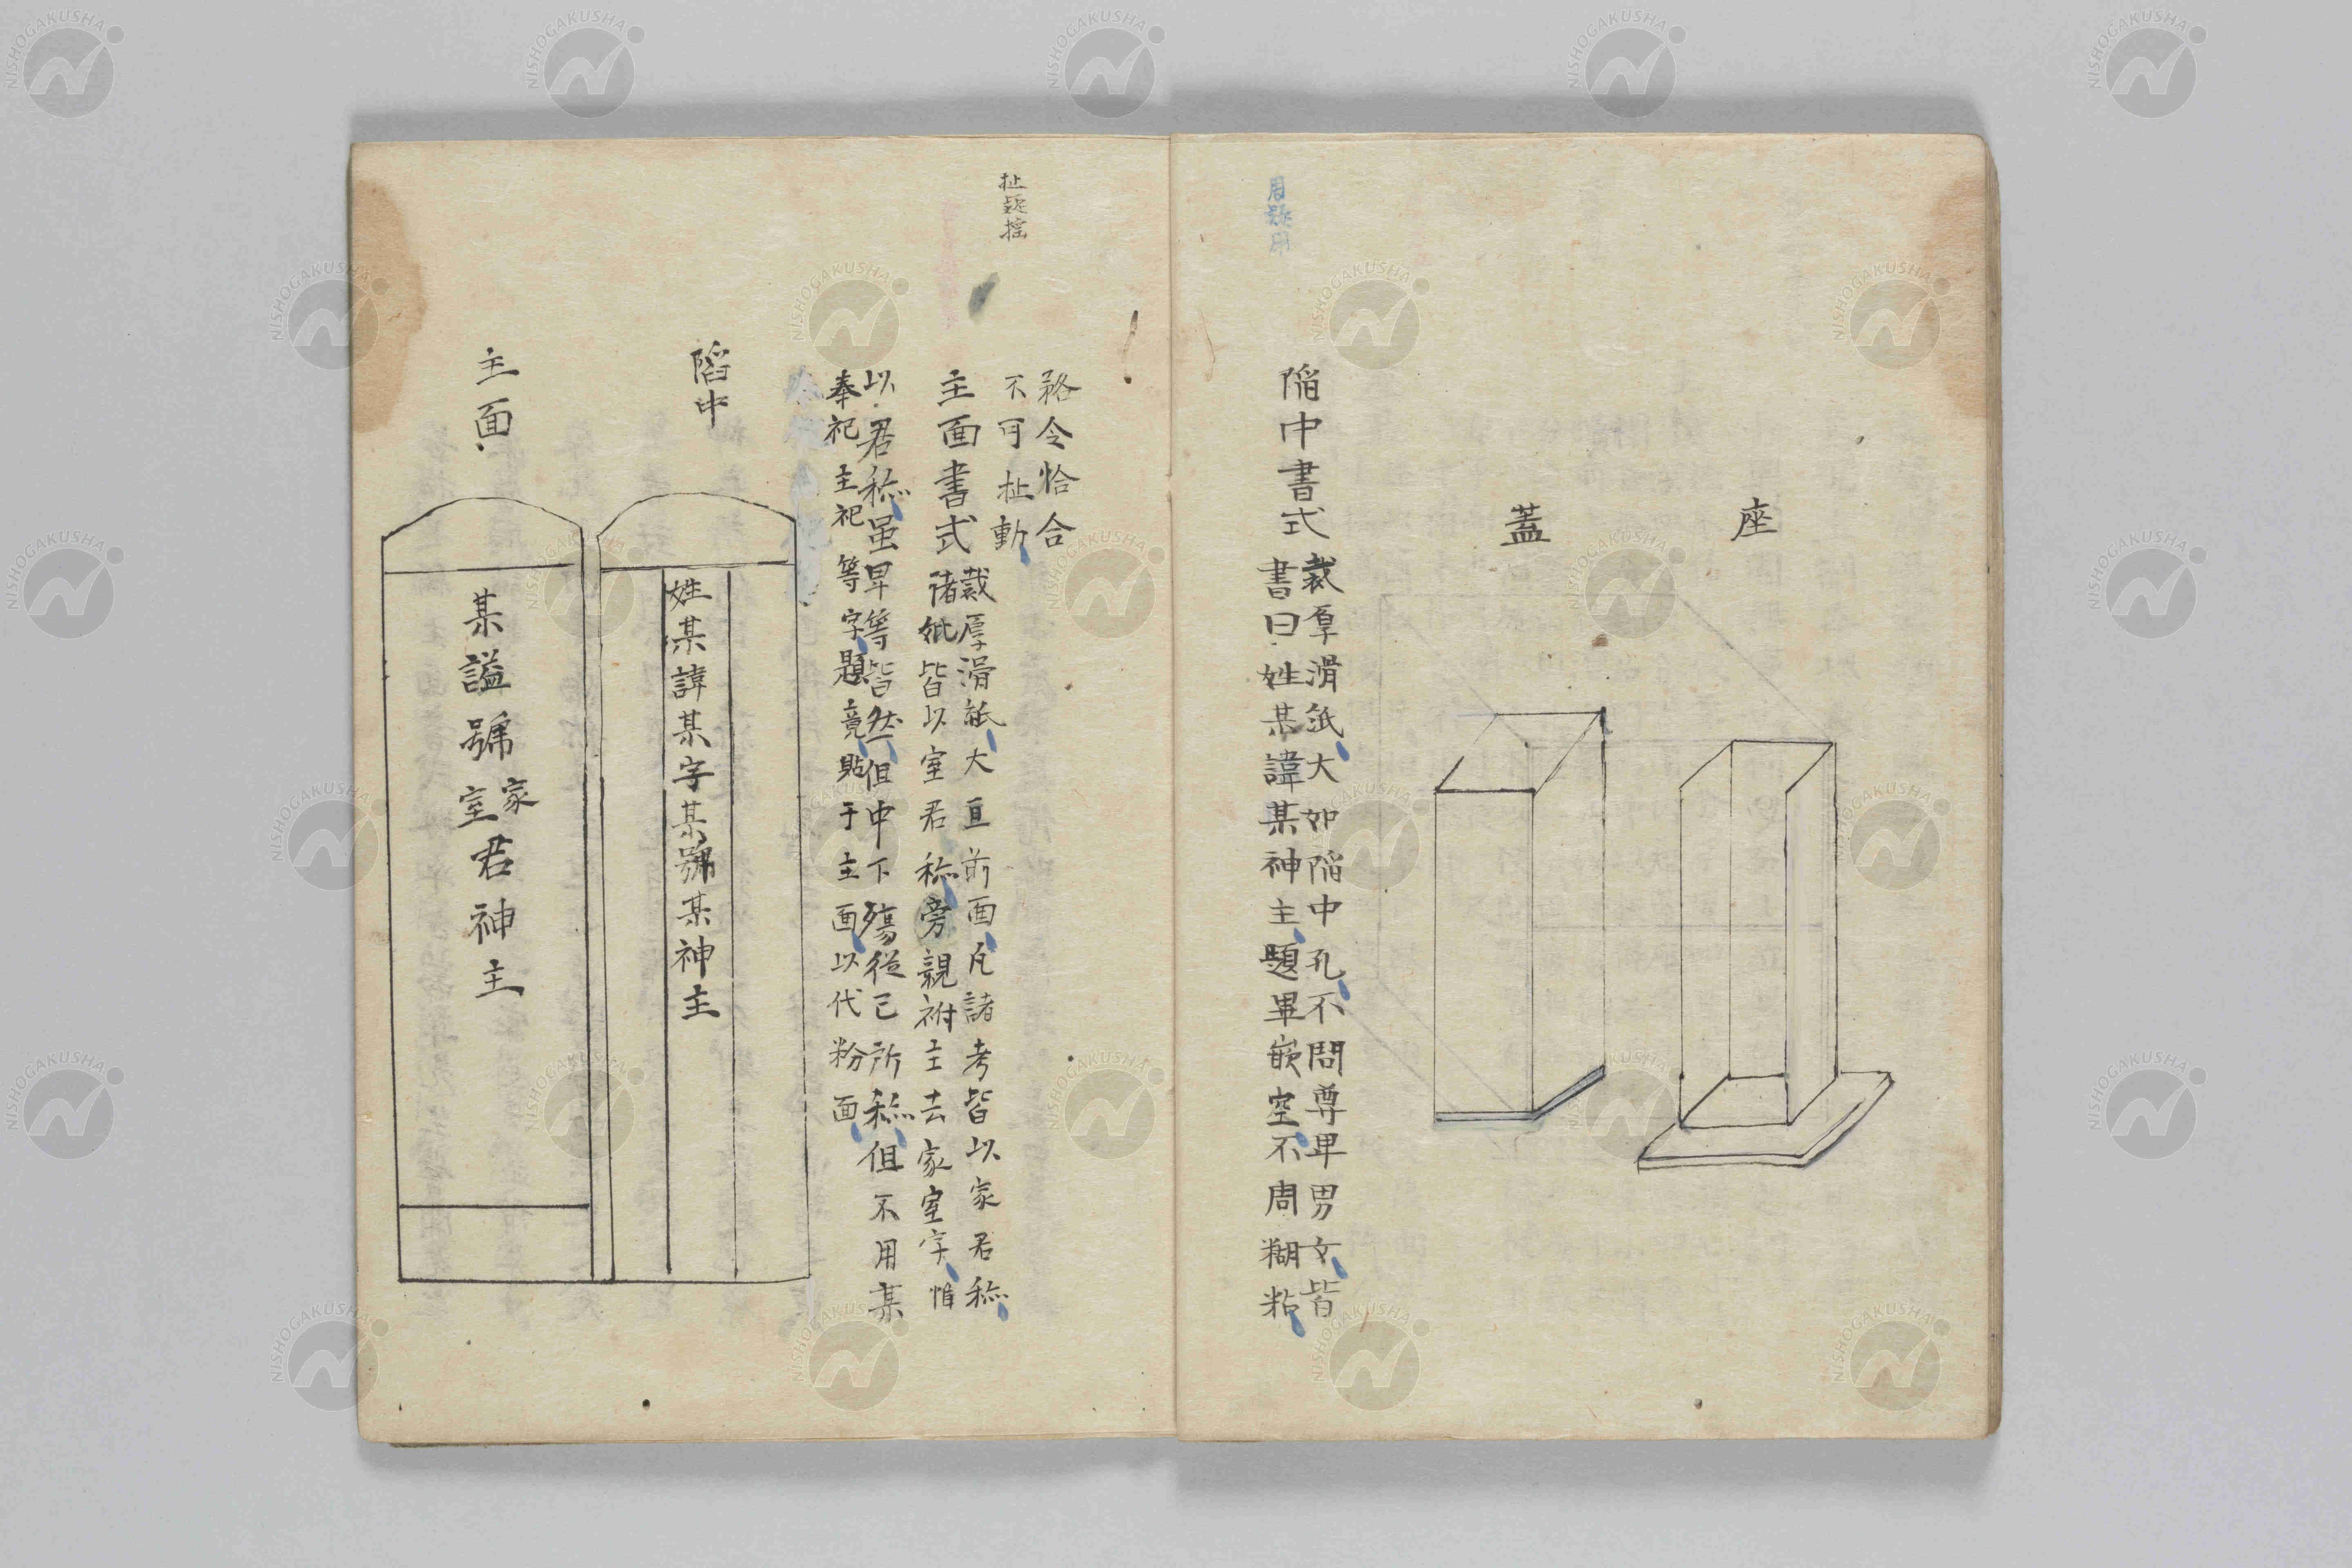 座
蓋
周疑用
陷中書式
裁厚滑紙大如陷中孔不問尊卑男女皆
書曰姓某諱某神主題畢嵌空不周糊粘
扯疑搖
令恰合
不可扯動
主面書式
裁厚滑紙大亘前面凡諸考皆以家君稱
諸妣皆以室君稱旁親祔主去家室字惟
以君稱虽卑等皆然但中下殤從己所稱但不用某
奉祀主祀等字題竟貼于主面以代粉面
陷中
姓某諱某字某號某神主
主面
某謚號家室君神主
NISHOGAKUSHA